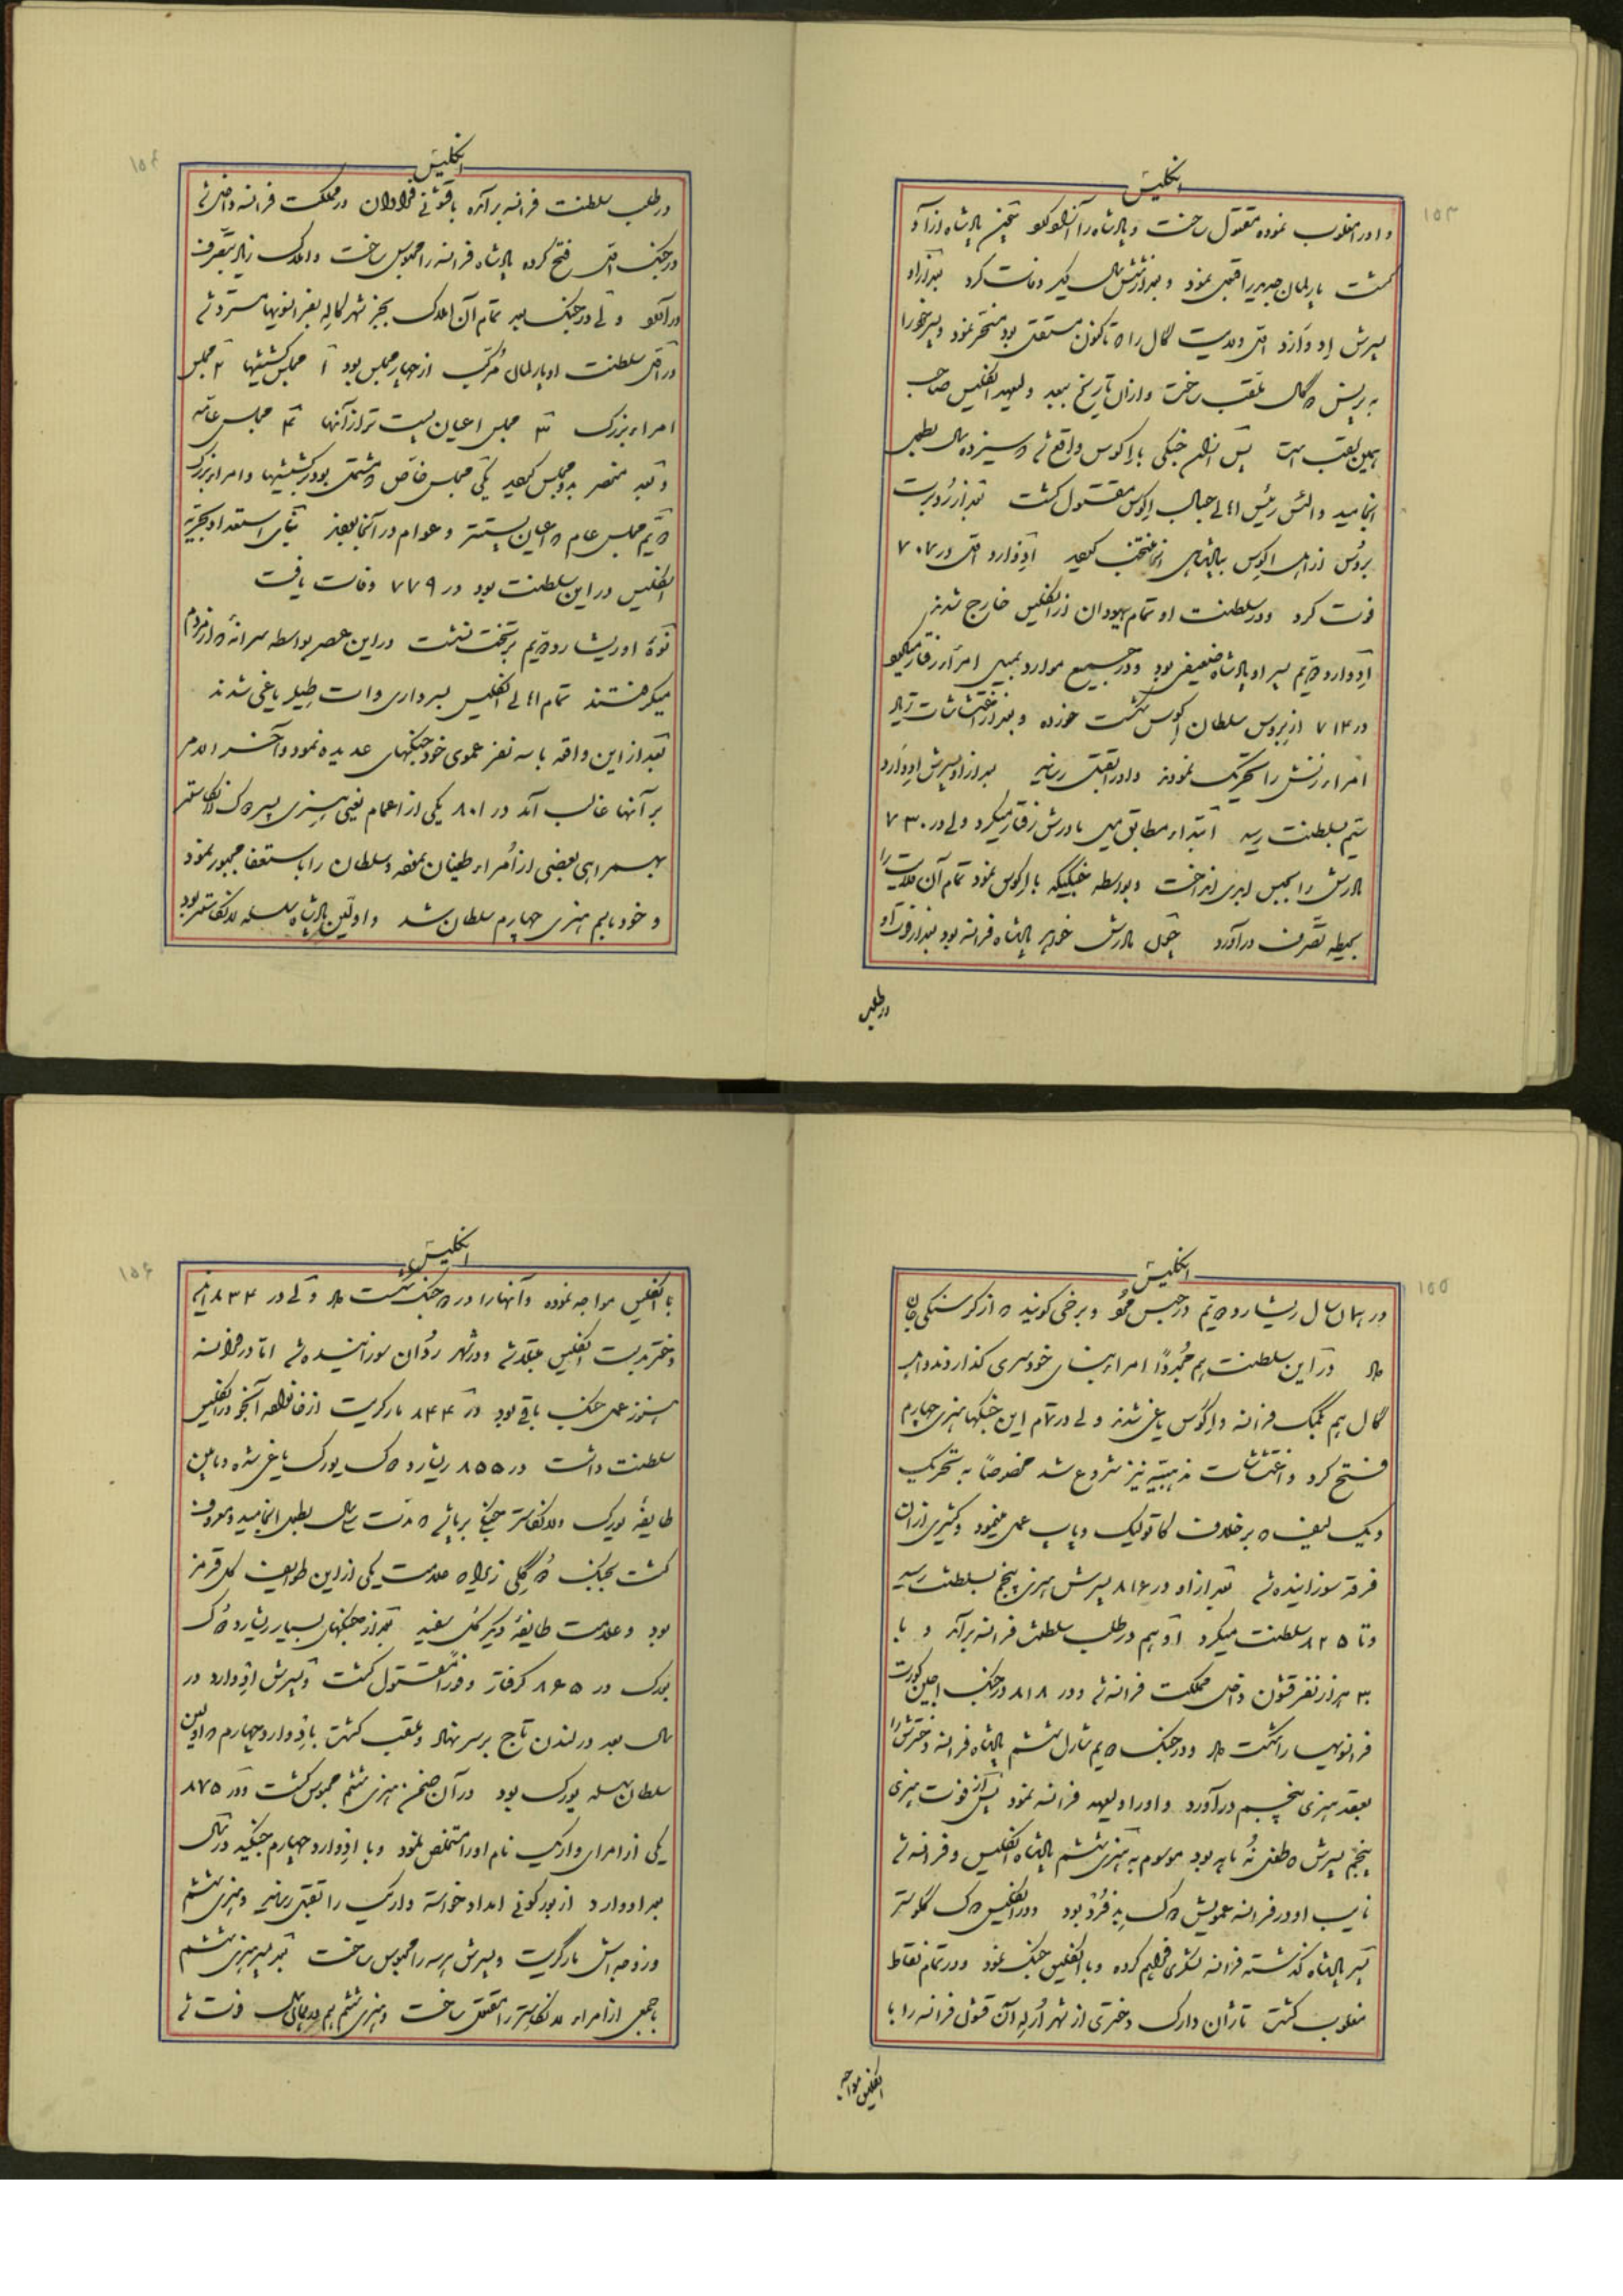 ۱۵۳
انگلیس
و او را مغلوب نموده مقتول ساخت و پادشاه را آزاد پادشاه از او
گشت پارلمان جدید را قبول نمود و بعد از شش سال دیگر وفات کرد بعد از او
پسرش ادوارد اول ولایت گال را که تاکنون مستقل بود مسخر نمود و پسر خود را
به پرینس دگال ملقب ساخت و از آن تاریخ ببعد ولیعهد انگلیس صاحب
همین لقب است پس از آن جنگی با اکوس واقع شد که سیزده سال بطول
انجامید و الس رئیس اهالی جبال اکوس مقتول گشت بعد از روبرت
بروس از اهل اکوس بپادشاهی منتخب گردید ادوارد اول در ۷۰۷
فوت کرد و در سلطنت او تمام یهودان از انگلیس خارج شدند
ادوارد دویم پسر او پادشاه ضعیفی بود و در جمیع موارد بمیل امرا رفتار میکرد
در ۷۱۴ از بروس سلطان اکوس شکست خورده و بعد از اغتشاشات زیاد
امرا زنش را تحریک نمودند و او را بقتل رسانید بعد از او پسرش ادوارد
سیم بسلطنت رسید ابتدا مطابق میل مادرش رفتار میکرد ولی در ۷۳۰
مادرش را بحبس ابدی انداخت و بواسطه جنگیکه با اکوس نمود تمام آن ولایت را
بحیطه تصرف درآورد چون مادرش خواهر پادشاه فرانسه بود بعد از فوت او
در طلب
۱۵۴
انگلیس
در طلب سلطنت فرانسه برآمده با قشونی فراوان در مملکت فرانسه داخل شد
در جنگ اول فتح کرده پادشاه فرانسه را محبوس ساخت و املاک زیاد بتصرف
درآورد ولی در جنگ بعد تمام آن املاک بجز شهر کاله بفرانسویها مسترد شد
در اول سلطنت او پارلمان مرکب از چهار مجلس بود ۱ مجلس کشیشها ۲ مجلس
امراء بزرگ ۳ مجلس اعیان پست‌تر از آنها ۴ مجلس عامه
و بعد منحصر بدو مجلس گردید یکی مجلس خاص که مشتمل بود بر کشیشها و امراء بزرگ
دویم مجلس عام که اعیان پست‌تر و عوام در آنجا بودند بنای استعداد بحریه
انگلیس در این سلطنت بود در ۷۷۹ وفات یافت
نوهٔ او ریشارد دویم بر تخت نشست در این عصر بواسطه سرانهٔ که از مردم
میگرفتند تمام اهالی انگلیس بسرداری وات طیلر یاغی شدند
بعد از این واقعه با سه نفر عموی خود جنگهای عدیده نمود و آخر الامر
بر آنها غالب آمد در ۸۰۱ یکی از اعمام یعنی هنری پسر دک لانکاستر
بهمراهی بعضی از امراء طغیان نموده و سلطان را باستعفا مجبور نمود
و خود باسم هنری چهارم سلطان شد و اولین پادشاه سلسله لانکاستر بود
۱۵۵
انگلیس
در همان سال ریشارد دویم در حبس مُرد و برخی گویند که از گرسنگی جان
داد در این سلطنت هم مجدداً امراء بنای خودسری گذاردند و اهل
گال هم بکمک فرانسه و اکوس یاغی شدند ولی در تمام این جنگها هنری چهارم
فتح کرد و اغتشاشات مذهبیه نیز شروع شد مخصوصاً به تحریک
ویک لیف که بر خلاف کاتولیک و پاپ عمل مینمود و کثیری از آن
فرقه سوزانیده شد بعد از او در ۸۱۶ پسرش هنری پنجم بسلطنت رسید
و تا ۸۲۵ سلطنت میکرد او هم در طلب سلطنت فرانسه برآمد و با
۳۰ هزار نفر قشون داخل مملکت فرانسه شد و در ۸۱۸ در جنگ اجین کورت
فرانسویها را شکست داد و در جنگ دویم شارل ششم پادشاه فرانسه دخترش را
بعقد هنری پنجم درآورد و او را ولیعهد فرانسه نمود پس از فوت هنری
پنجم پسرش که طفل نُه ماهه بود موسوم به هنری ششم پادشاه انگلیس و فرانسه شد
نایب او در فرانسه عمویش دک بدفرد بود و در انگلیس دک گلوستر
پسر پادشاه گذشته فرانسه لشکری فراهم کرده و با انگلیس جنگ نمود و در تمام نقاط
مغلوب گشت تا ژان دارک دختری از شهر ارلهآن قشون فرانسه را با
انگلیس مواجه
۱۵۶
انگلیس
با انگلیس مواجه نموده و آنها را در جنگ شکست داد ولی در ۸۳۴ این
دختر بدست انگلیس مبتلا شد و در شهر رُوان سوزانیده شد اما در فرانسه
هنوز عمل جنگ باقی بود در ۸۴۴ مارگریت از خانواده آنجو در انگلیس
سلطنت داشت در ۸۵۵ ریشارد دک یورک یاغی شده و مابین
طایفهٔ یورک و لانکاستر جنگی برپا شد که مدت سی سال بطول انجامید و معروف
گشت بجنگ دو گلی زیرا که علامت یکی از این طوایف گل قرمز
بود و علامت طایفهٔ دیگر گل سفید بعد از جنگهای بسیار ریشارد دک
یورک در ۸۶۵ گرفتار و فوراً مقتول گشت و پسرش ادوارد در
سال بعد در لندن تاج بر سر نهاد و ملقب گشت بادوارد چهارم که اولین
سلطان سلسله یورک بود در آن ضمن هنری ششم محبوس گشت و در ۸۷۵
یکی از امرای واریک نام او را مستخلص نمود و با ادوارد چهارم جنگید در سال
بعد ادوارد از بورگونی امداد خواسته واریک را بقتل رسانید و هنری ششم
و زوجه‌اش مارگریت و پسرش هر سه را محبوس ساخت بعد پسر هنری ششم
با جمعی از امراء لانکاستر را مقتول ساخت و هنری ششم هم در همان سال فوت شد